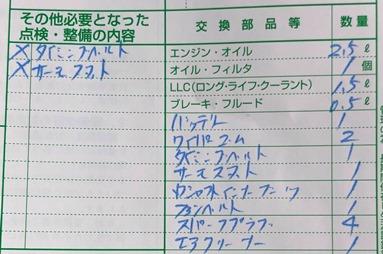 その他必要となった
点検・整備の内容
交換部品等
数量
× タイミングベルト
× サーモスタット
エンジン・オイル 2.5ℓ
オイル・フィルタ 1個
LLC(ロング・ライフ・クーラント) 1.5ℓ
ブレーキ・フルード 0.5ℓ
バッテリー 1
ワイパーゴム 2
タイミングベルト 1
サーモスタット 1
1
ファンベルト 1
スパークプラグ 4
エアクリーナー 1